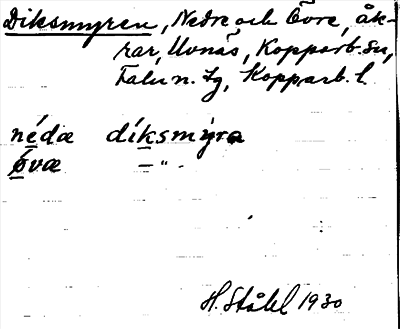 Diksmyren, Nedre och Övre, åk-
rar, Uvnäs, Kopparb. sn,
Falu n. tg, Kopparb. l.
nédæ díksmýra
øvæ —"—
H. Ståhl 1930